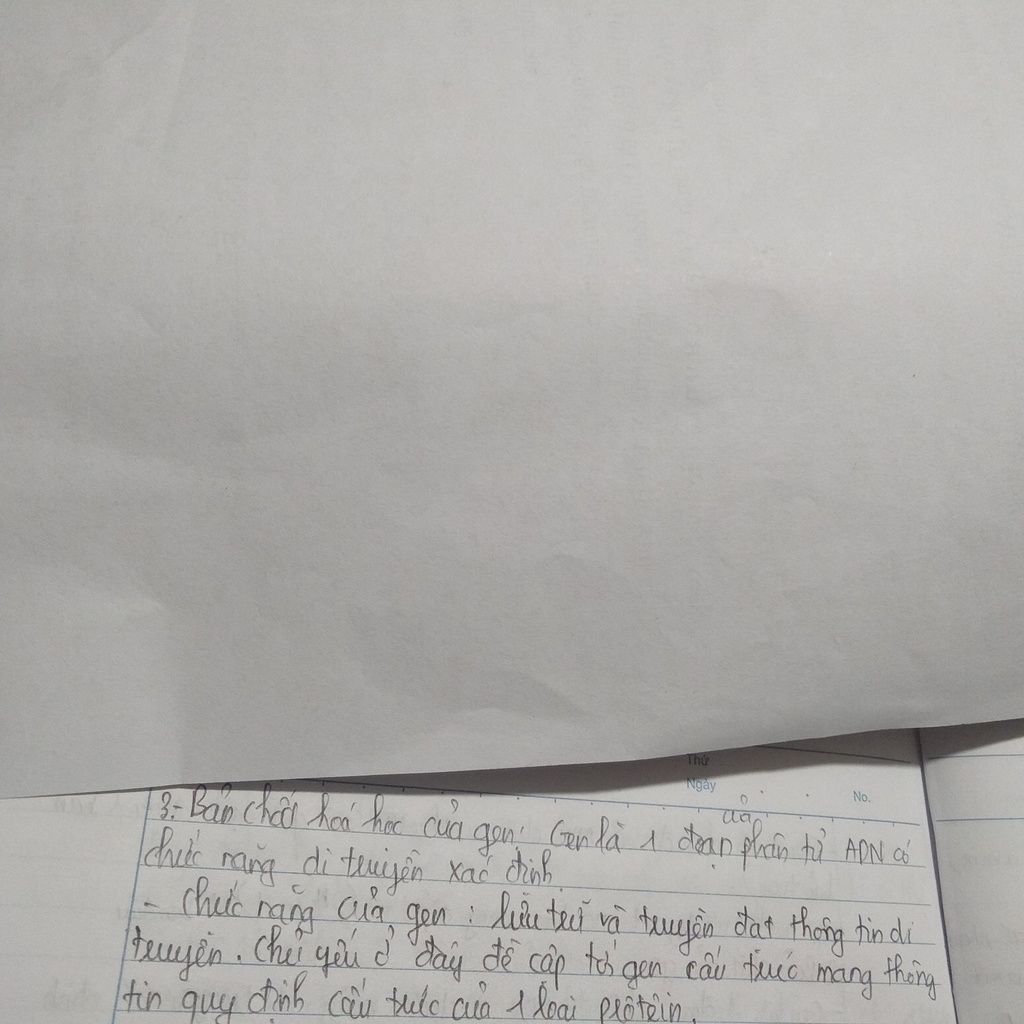 Thứ
Ngày
No.
3:- Bản chất hoá học của gen: Gen là 1 đoạn của phân tử ADN có
chức năng di truyền xác định.
- Chức năng của gen: lưu trữ và truyền đạt thông tin di
truyền. Chủ yếu ở đây đề cập tới gen cấu trúc mang thông
tin quy định cấu trúc của 1 loại prôtêin.